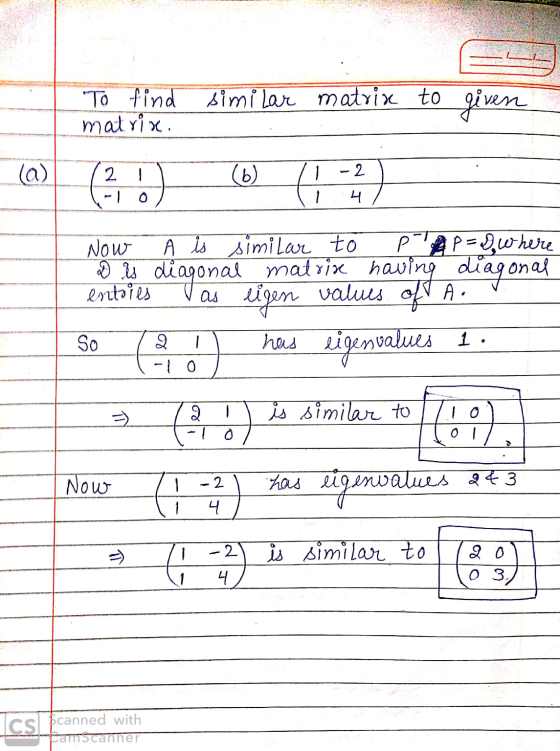 To find similar matrix to given
matrix.
(a) (2 1
-1 0) (b) (1 -2
1 4)
Now A is similar to P⁻¹AP = D, where
D is diagonal matrix having diagonal
entries as eigen values of A.
So (2 1
-1 0) has eigenvalues 1.
⇒ (2 1
-1 0) is similar to (1 0
0 1),
Now (1 -2
1 4) has eigenvalues 2 & 3
⇒ (1 -2
1 4) is similar to (2 0
0 3)
CS Scanned with
CamScanner